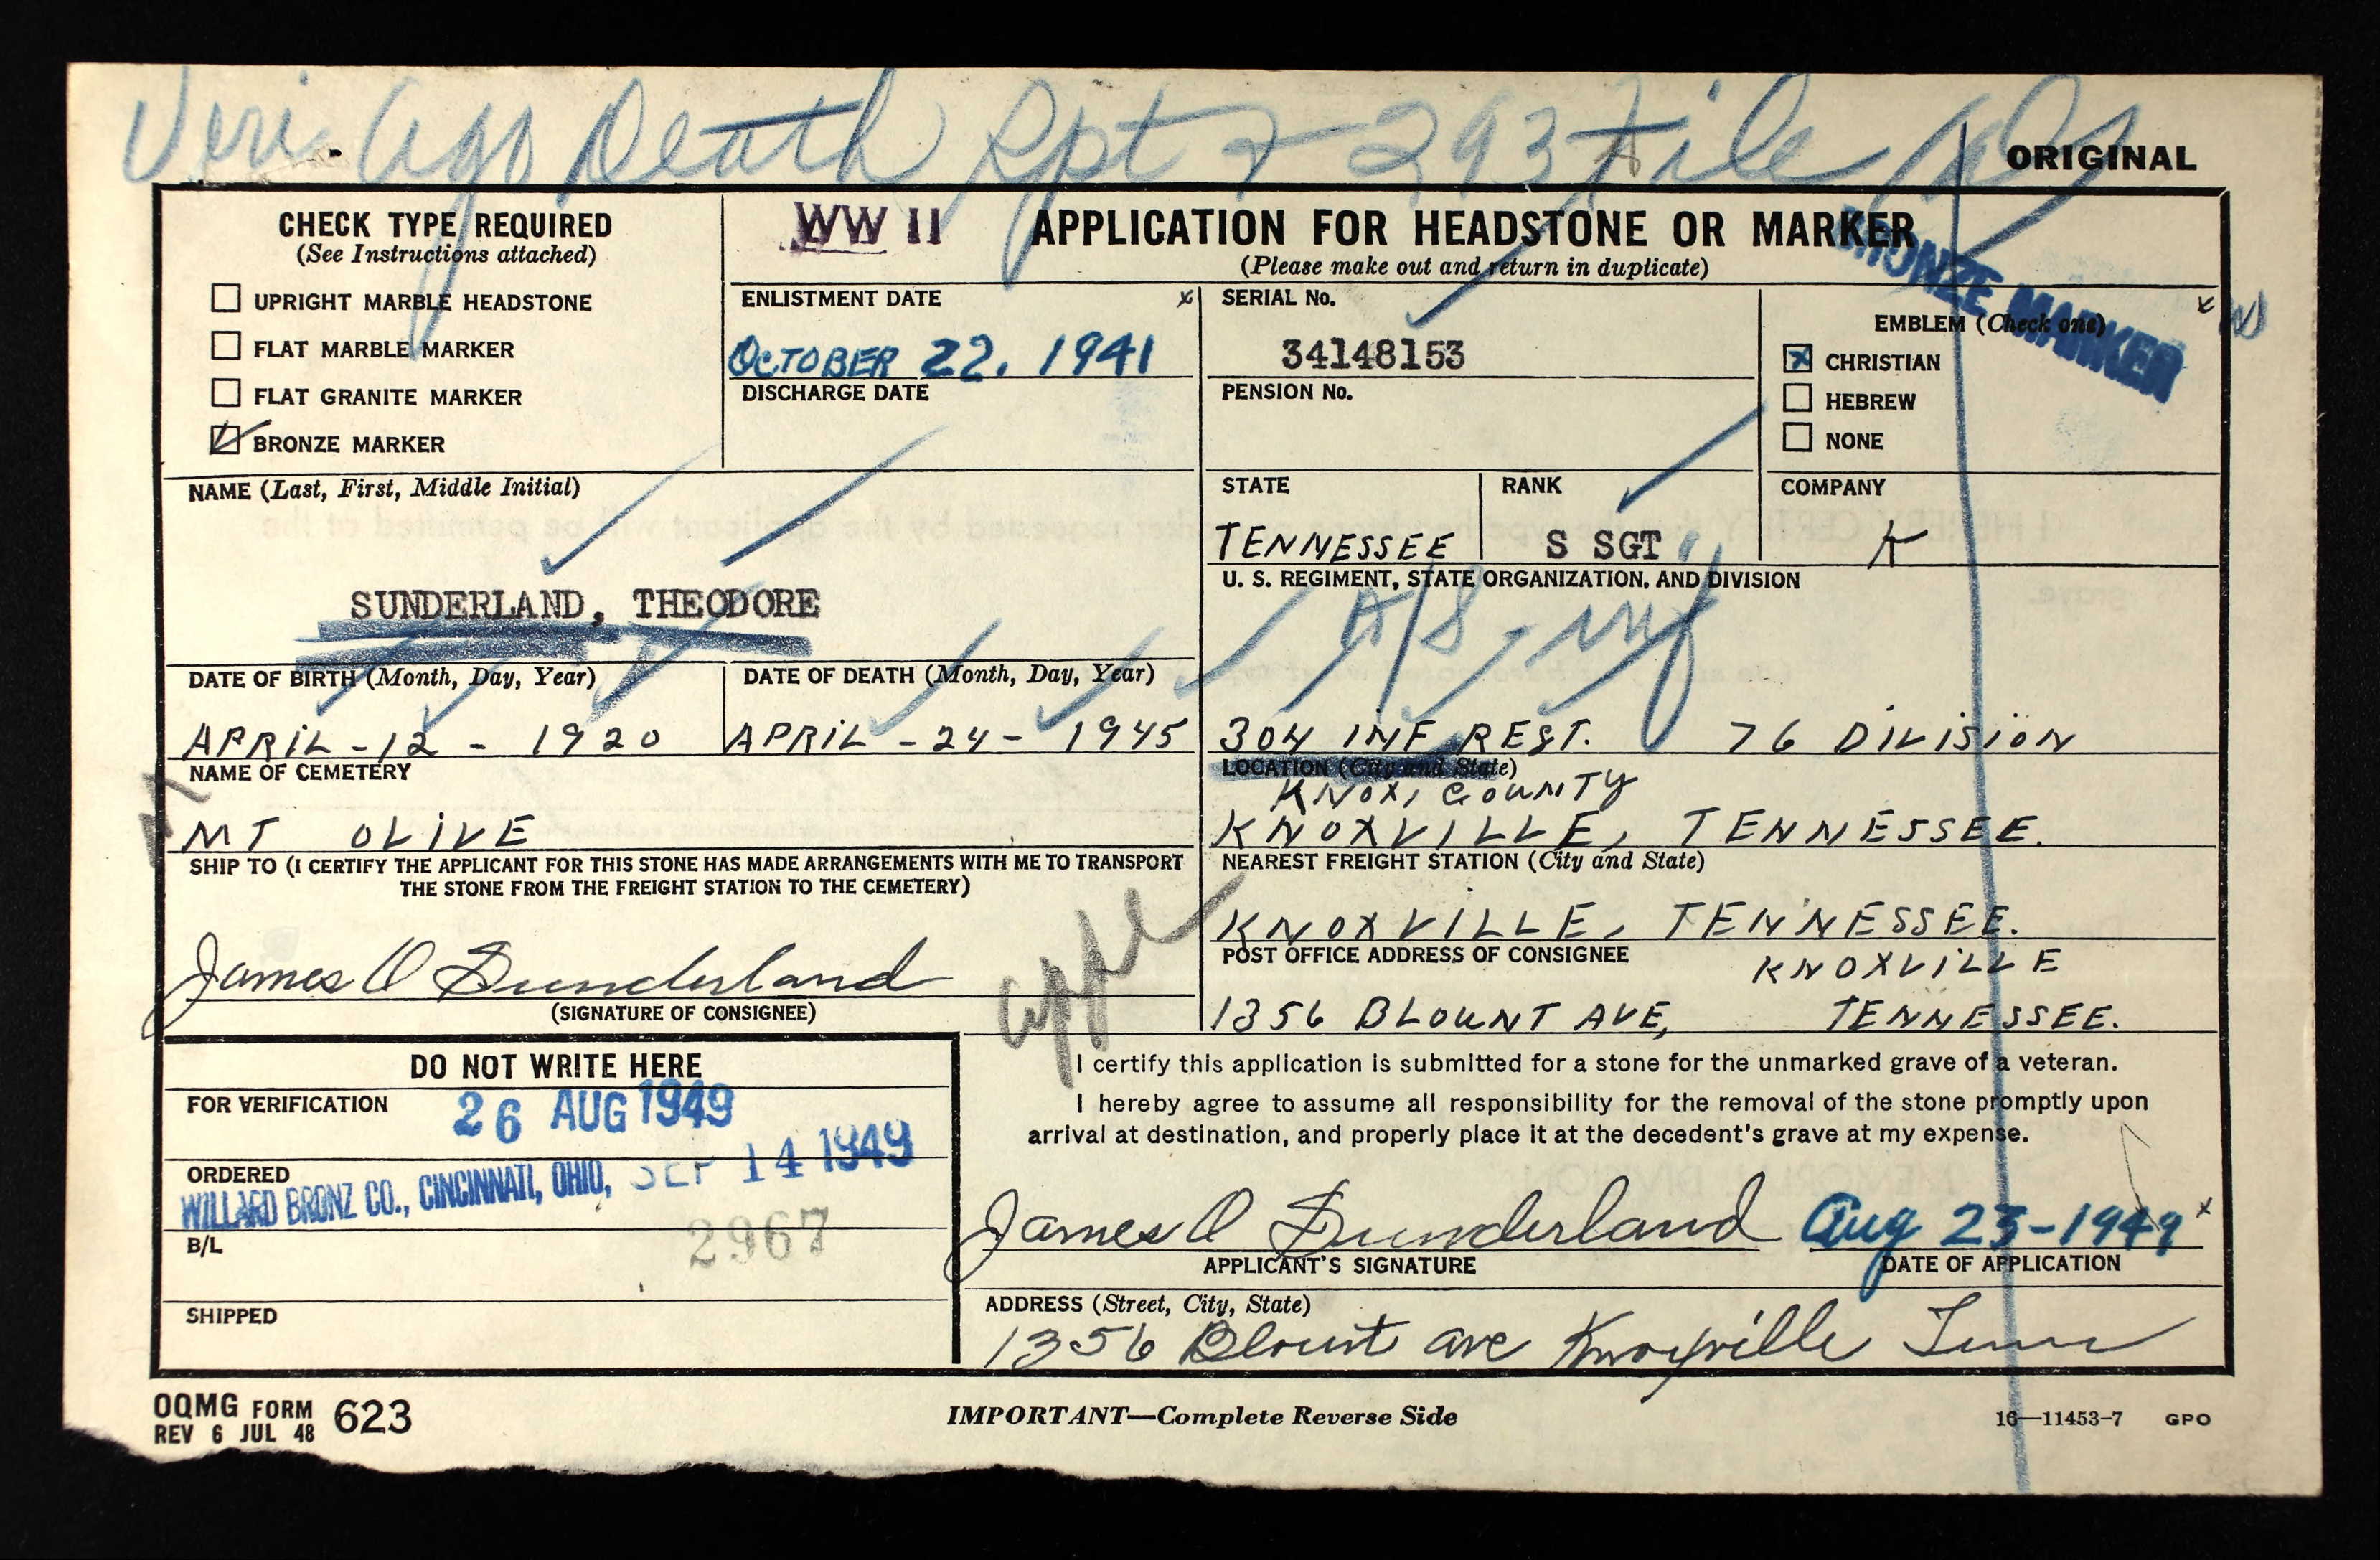 Veri. Ago Death Rpt & 293 File
ORIGINAL
CHECK TYPE REQUIRED
(See Instructions attached)
UPRIGHT MARBLE HEADSTONE
FLAT MARBLE MARKER
FLAT GRANITE MARKER
BRONZE MARKER
WW II
APPLICATION FOR HEADSTONE OR MARKER
(Please make out and return in duplicate)
BRONZE MARKER
ENLISTMENT DATE x
OCTOBER 22, 1941
DISCHARGE DATE
SERIAL No.
34148153
PENSION No.
EMBLEM (Check one) x
x CHRISTIAN
HEBREW
NONE
NAME (Last, First, Middle Initial)
SUNDERLAND, THEODORE
STATE
TENNESSEE
RANK
S SGT
COMPANY
K
U. S. REGIMENT, STATE ORGANIZATION, AND DIVISION
304 INF REGT. 76 DIVISION
DATE OF BIRTH (Month, Day, Year)
APRIL - 12 - 1920
DATE OF DEATH (Month, Day, Year)
APRIL - 24 - 1945
NAME OF CEMETERY
MT OLIVE
LOCATION (City and State)
KNOX, COUNTY
KNOXVILLE, TENNESSEE.
SHIP TO (I CERTIFY THE APPLICANT FOR THIS STONE HAS MADE ARRANGEMENTS WITH ME TO TRANSPORT
THE STONE FROM THE FREIGHT STATION TO THE CEMETERY)
James O Sunderland
(SIGNATURE OF CONSIGNEE)
NEAREST FREIGHT STATION (City and State)
KNOXVILLE, TENNESSEE.
POST OFFICE ADDRESS OF CONSIGNEE
KNOXVILLE
1356 BLOUNT AVE, TENNESSEE.
appl
DO NOT WRITE HERE
FOR VERIFICATION
26 AUG 1949
ORDERED
WILLARD BRONZ CO., CINCINNATI, OHIO, SEP 14 1949
B/L
2967
SHIPPED
I certify this application is submitted for a stone for the unmarked grave of a veteran.
I hereby agree to assume all responsibility for the removal of the stone promptly upon
arrival at destination, and properly place it at the decedent's grave at my expense.
James O Sunderland Aug 23-1949 x
APPLICANT'S SIGNATURE
DATE OF APPLICATION
ADDRESS (Street, City, State)
1356 Blount ave Knoxville Tenn
OQMG FORM 623
REV 6 JUL 48
IMPORTANT—Complete Reverse Side
16—11453-7 GPO